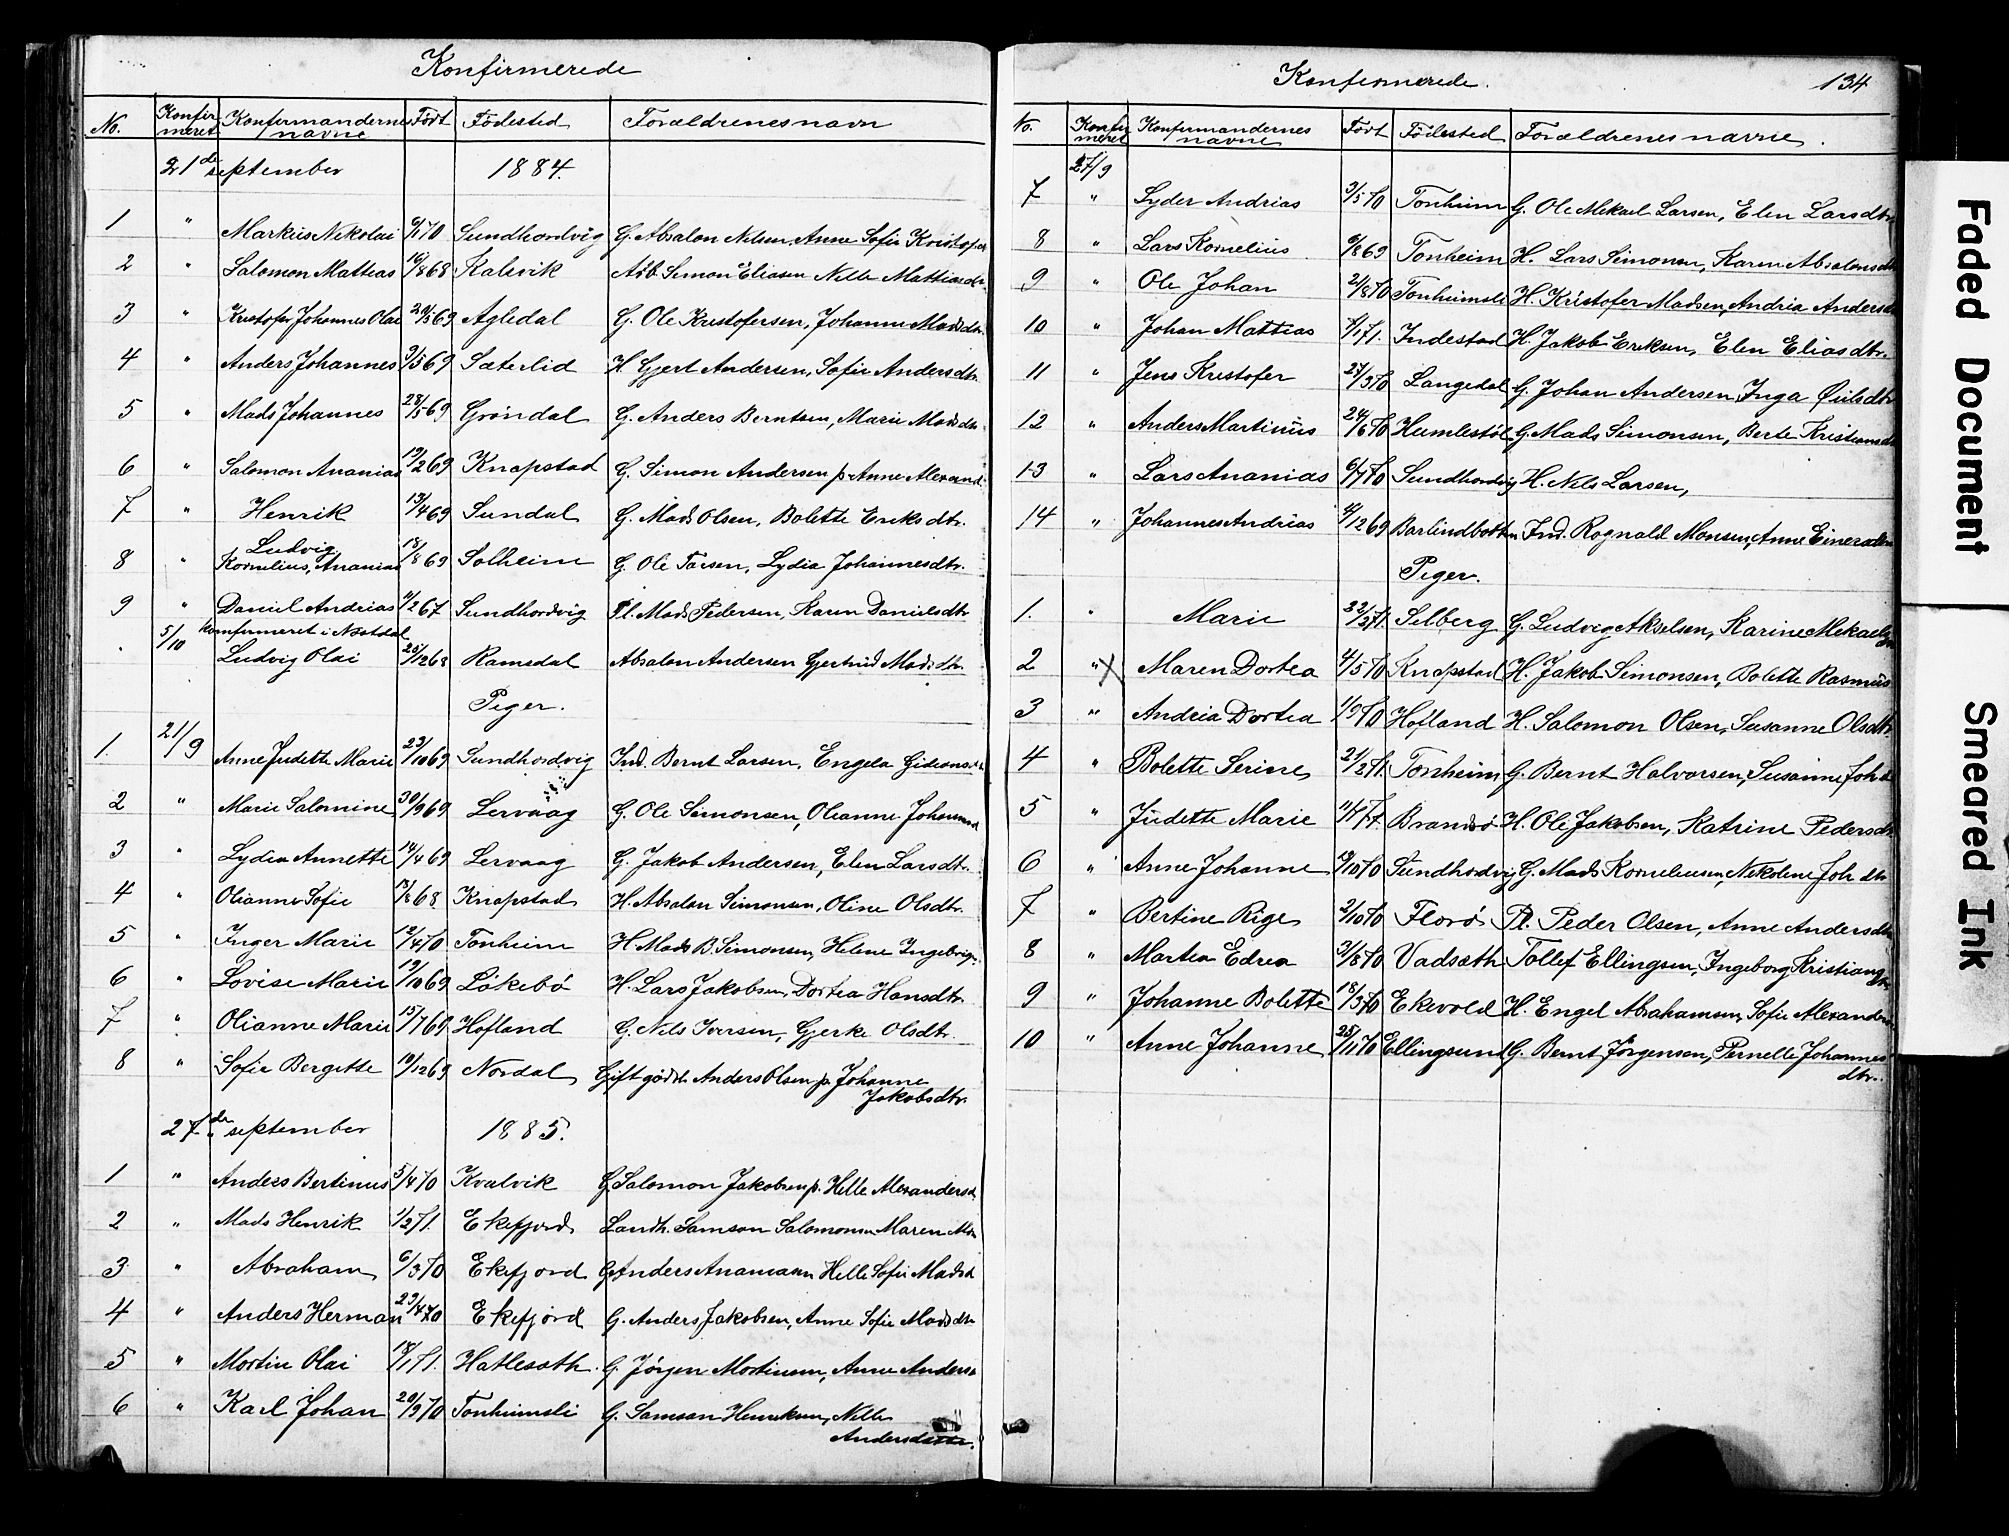 Konfirmerede
No. Konfirmeret Konfirmandernes navne Født Fødested Forældrenes navn
21de september 1884.
1 " Markus Nikolai 6/1 70 Sundhordvig G. Absalon Nilsen Anne Sofie Kristofer
2 " Salomon Mattias 10/8 68 Kalsvik Arb. Simon Eliasen Nille Mattiasdtr.
3 " Kristofer Johannes Olai 20/5 69 Agledal G. Ole Kristofersen, Johanne Madsdtr.
4 " Anders Johannes 9/5 69 Sæterlid H. Gjert Andersen, Sofie Andersdtr.
5 " Mads Johannes 28/5 69 Grøndal G. Anders Berntsen, Marie Madsdtr.
6 " Salomon Ananias 19/2 69 Knapstad G. Simon Andersen p. Anne Alexand.
7 " Henrik 13/4 69 Sundal G. Mads Olsen, Bolette Eriksdtr.
8 " Ludvig Kornelius, Ananias 18/8 69 Solheim G. Ole Larsen, Lydia Johannesdtr.
9 " Daniel Andrias 4/2 67 Sundhordvig Pl. Mads Pedersen, Karen Danielsdtr
5/10 konfirmeret i Nøstdal
Ludvig Olai 25/12 68 Ramsdal Absalon Andersen Gjertrud Madsdtr.
Piger.
1. 21/9 Anne Judette Marie 23/10 69 Sundhordvig Ind. Bernt Larsen, Engela Gideonsdtr
2 " Marie Salomine 30/9 69 Lervaag G. Ole Simonsen, Olianne Johannesd
3 " Lydia Annette 14/4 69 Lervaag G. Jakob Andersen, Elen Larsdtr.
4 " Olianne Sofie 17/8 68. Knapstad H. Absalon Simonsen, Oline Olsdtr.
5 " Inger Marie 12/4 70 Tonheim H. Mads B. Simonsen, Helene Ingebrigt.
6 " Lovise Marie 19/10 69 Løkebø H. Lars Jakobsen, Dortea Hansdtr.
7 " Olianne Marie 15/7 69 Hofland G. Nils Iversen, Gjerke Olsdtr.
8 " Sofie Bergitte 19/12 69 Nordal Gift gdbr. Anders Olsen p. Johanne
Jakobsdtr.
27de september 1885.
1 " Anders Bertinus 5/4 70 Kvalvik G. Salomon Jakobsen p. Helle Alexandersd.
2 " Mads Henrik 1/2 71. Ekefjord Landh. Samson Salomonsen Maren Mdtr
3 " Abraham 6/3 70 Ekefjord G. Anders Anamasn Helle Sofie Madsd
4 " Anders Herman 29/4 70 Ekefjord G. Anders Jakobsen, Anne Sofie Madsdtr
5 " Mortin Olai 18/1 71. Hatlesæth. G. Jörgen Mortinsen, Anne Anders
6 " Karl Johan 20/9 70 Tonheimsli G. Samson Henriksen, Nille
Andersdatter.
Konfirmerede.
134
No. Konfirmeret Konfirmandernes navne Født Fødested Forældrenes navne.
27/9
7 " Lyder Andrias 3/5 70 Tonheim G. Ole Mekael Larsen, Elen Larsdtr
8 " Lars Kornelius 9/8 69 Tonheim H. Lars Simonsen, Karen Absalonsdtr
9 " Ole Johan 2/8 70 Tonheimsli H. Kristofer Madsen, Andria Andersdtr
10 " Johan Mattias 4/1 71. Indestad H. Jakob Eriksen, Elen Eliasdtr.
11 " Jens Kristofer 27/3 70 Langedal G. Johan Andersen Inga Øulsdtr
12 " Anders Martinus 24/6 70 Humlestøl G. Mads Simonsen, Berte Kristiansdtr
13 " Lars Ananias 6/7 70 Sundhordvig H. Nils Larsen,
14 " Johannes Andrias 4/12 69 Barlindbotten Ind. Rognald Monsen, Anne Einersdtr
Piger.
1. " Marie 22/3 71. Selberg G. Ludvig Akselsen, Karine Mekaels
2 " Maren Dortea 4/5 70 Knapstad H. Jakob Simonsen, Bolette Rasmus
3 " Andria Dortea 1/9 70 Hofland H. Salomon Olsen, Susanne Olsdtr
4 " Bolette Serine 21/2 71. Tonheim G. Bernt Halvorsen, Susanne Joh.d
5 " Judette Marie 11/1 71. Brandsø H. Ole Jakobsen, Katrine Pedersdtr
6 " Anne Johanne 19/10 70 Sundhordvig G. Mads Korneliusen, Nikoline Joh. dtr
7 " Bertine Rige 2/10 70 Florø Pl. Peder Olsen, Anne Andersdtr
8 " Martea Edrea 3/6 70 Vadsæth Tollef Ellingsen, Ingeborg Kristians
9 " Johanne Bolette 18/3 70 Ekevold H. Engel Abrahamsen, Sofie Alexanders
10 " Anne Johanne 25/11 70 Ellingsund G. Bernt Jørgensen, Pernelle Johannes
dtr.
Faded Document
Smeared Ink